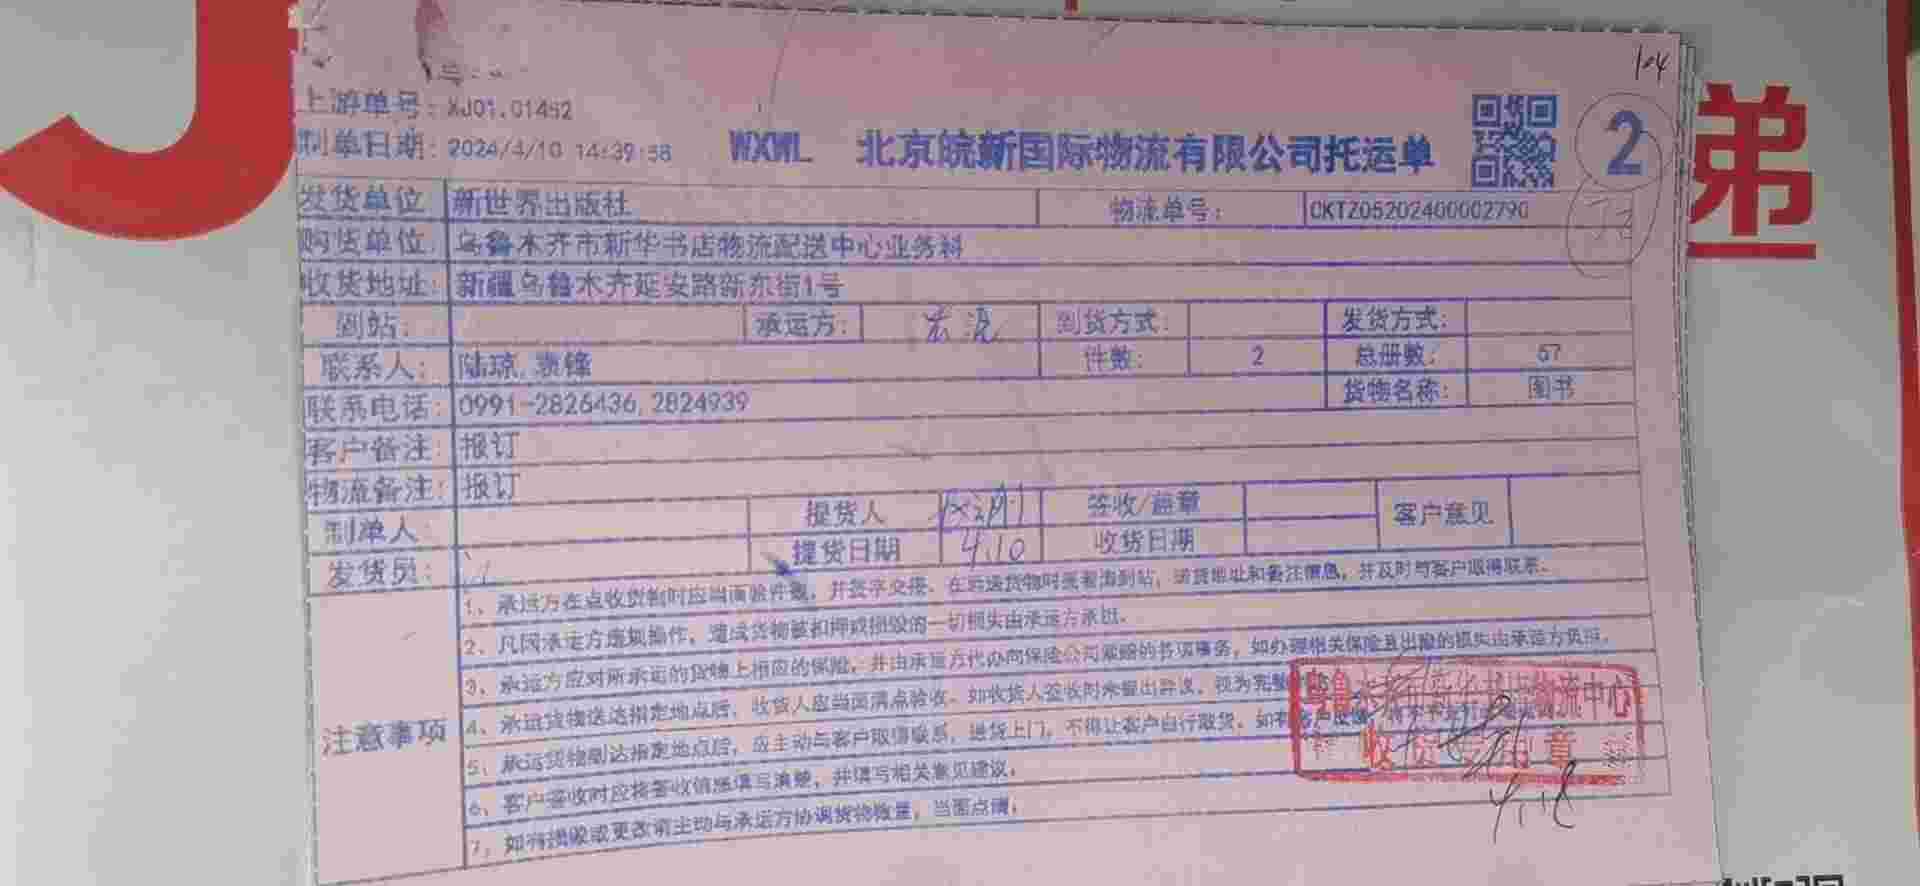 104
上游单号: XJ01.01452
制单日期: 2024/4/10 14:39:58
WXWL 北京皖新国际物流有限公司托运单
2
发货单位 新世界出版社 物流单号: CKTZ05202400002790
购货单位 乌鲁木齐市新华书店物流配送中心业务科
收货地址: 新疆乌鲁木齐延安路新东街1号
到站: 承运方: 到货方式: 发货方式:
联系人: 陆琼,袁锋 件数: 2 总册数: 67
联系电话: 0991-2826436,2824939 货物名称: 图书
客户备注: 报订
物流备注: 报订
制单人 提货人 签收/盖章 客户意见
发货员: 提货日期 4.10 收货日期
注意事项
1、承运方在点收货物时应当面验件数,并签字交接。在运送货物时须看清到站,送货地址和备注信息,并及时与客户取得联系。
2、凡因承运方违规操作,造成货物被扣押或损毁的一切损失由承运方承担。
3、承运方应对所承运的货物上相应的保险,并由承运方代办向保险公司索赔的各项事务,如办理相关保险且出险的损失由承运方负担。
4、承运货物送达指定地点后,收货人应当面清点验收。如收货人签收时未提出异议,视为完整
5、承运货物到达指定地点后,应主动与客户取得联系,送货上门,不得让客户自行取货。如有客户
6、客户签收时应将签收信息填写清楚,并填写相关意见建议。
7、如有损毁或更改请主动与承运方协调货物数量,当面点清。
乌鲁木齐市新华书店物流中心
收货专用章
递